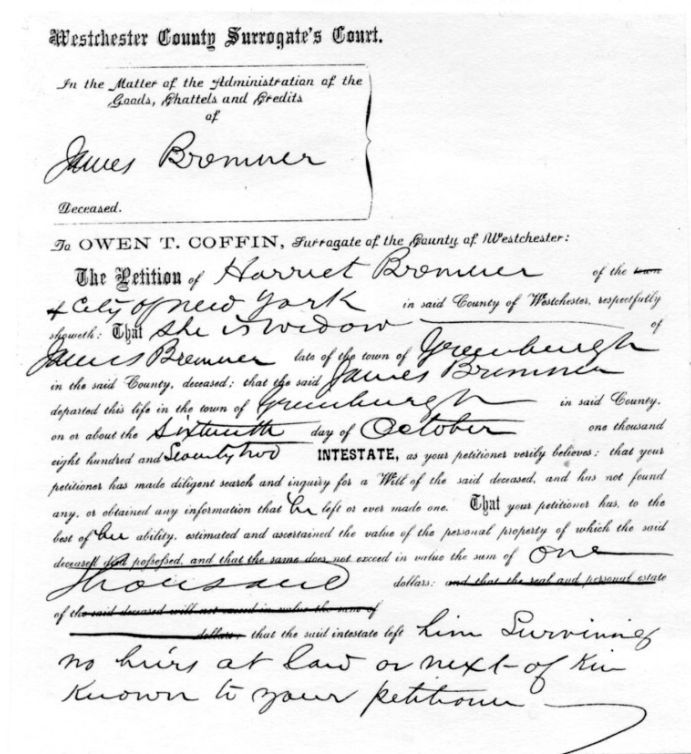 Westchester County Surrogate's Court.
In the Matter of the Administration of the
Goods, Chattels and Credits
of
James Bremner
Deceased.
To OWEN T. COFFIN, Surrogate of the County of Westchester:
The Petition of Harriet Bremner of the town
& City of New York in said County of Westchester, respectfully
showeth: That She is widow of
James Bremner late of the town of Greenburgh
in the said County, deceased; that the said James Bremner
departed this life in the town of Greenburgh in said County,
on or about the Sixteenth day of October one thousand
eight hundred and Seventy two INTESTATE, as your petitioner verily believes; that your
petitioner has made diligent search and inquiry for a Will of the said deceased, and has not found
any, or obtained any information that he left or ever made one. That your petitioner has, to the
best of her ability, estimated and ascertained the value of the personal property of which the said
deceased died possessed, and that the same does not exceed in value the sum of one
Thousand dollars; and that the real and personal estate
of the said deceased will not exceed in value the sum of
dollars, that the said intestate left him Surviving
no heirs at law or next of Kin
Known to your petitioner